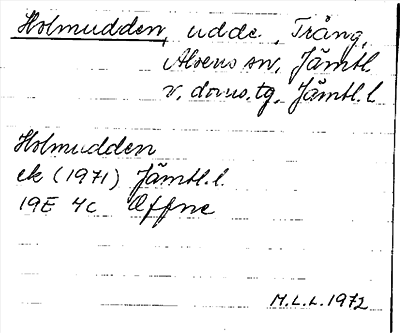 Holmudden, udde, Trång,
Alsens sn, Jämtl.
v. doms.tg, Jämtl.l
Holmudden
ek (1971) Jämtl.l.
19E 4c Offne
M.L.L. 1972